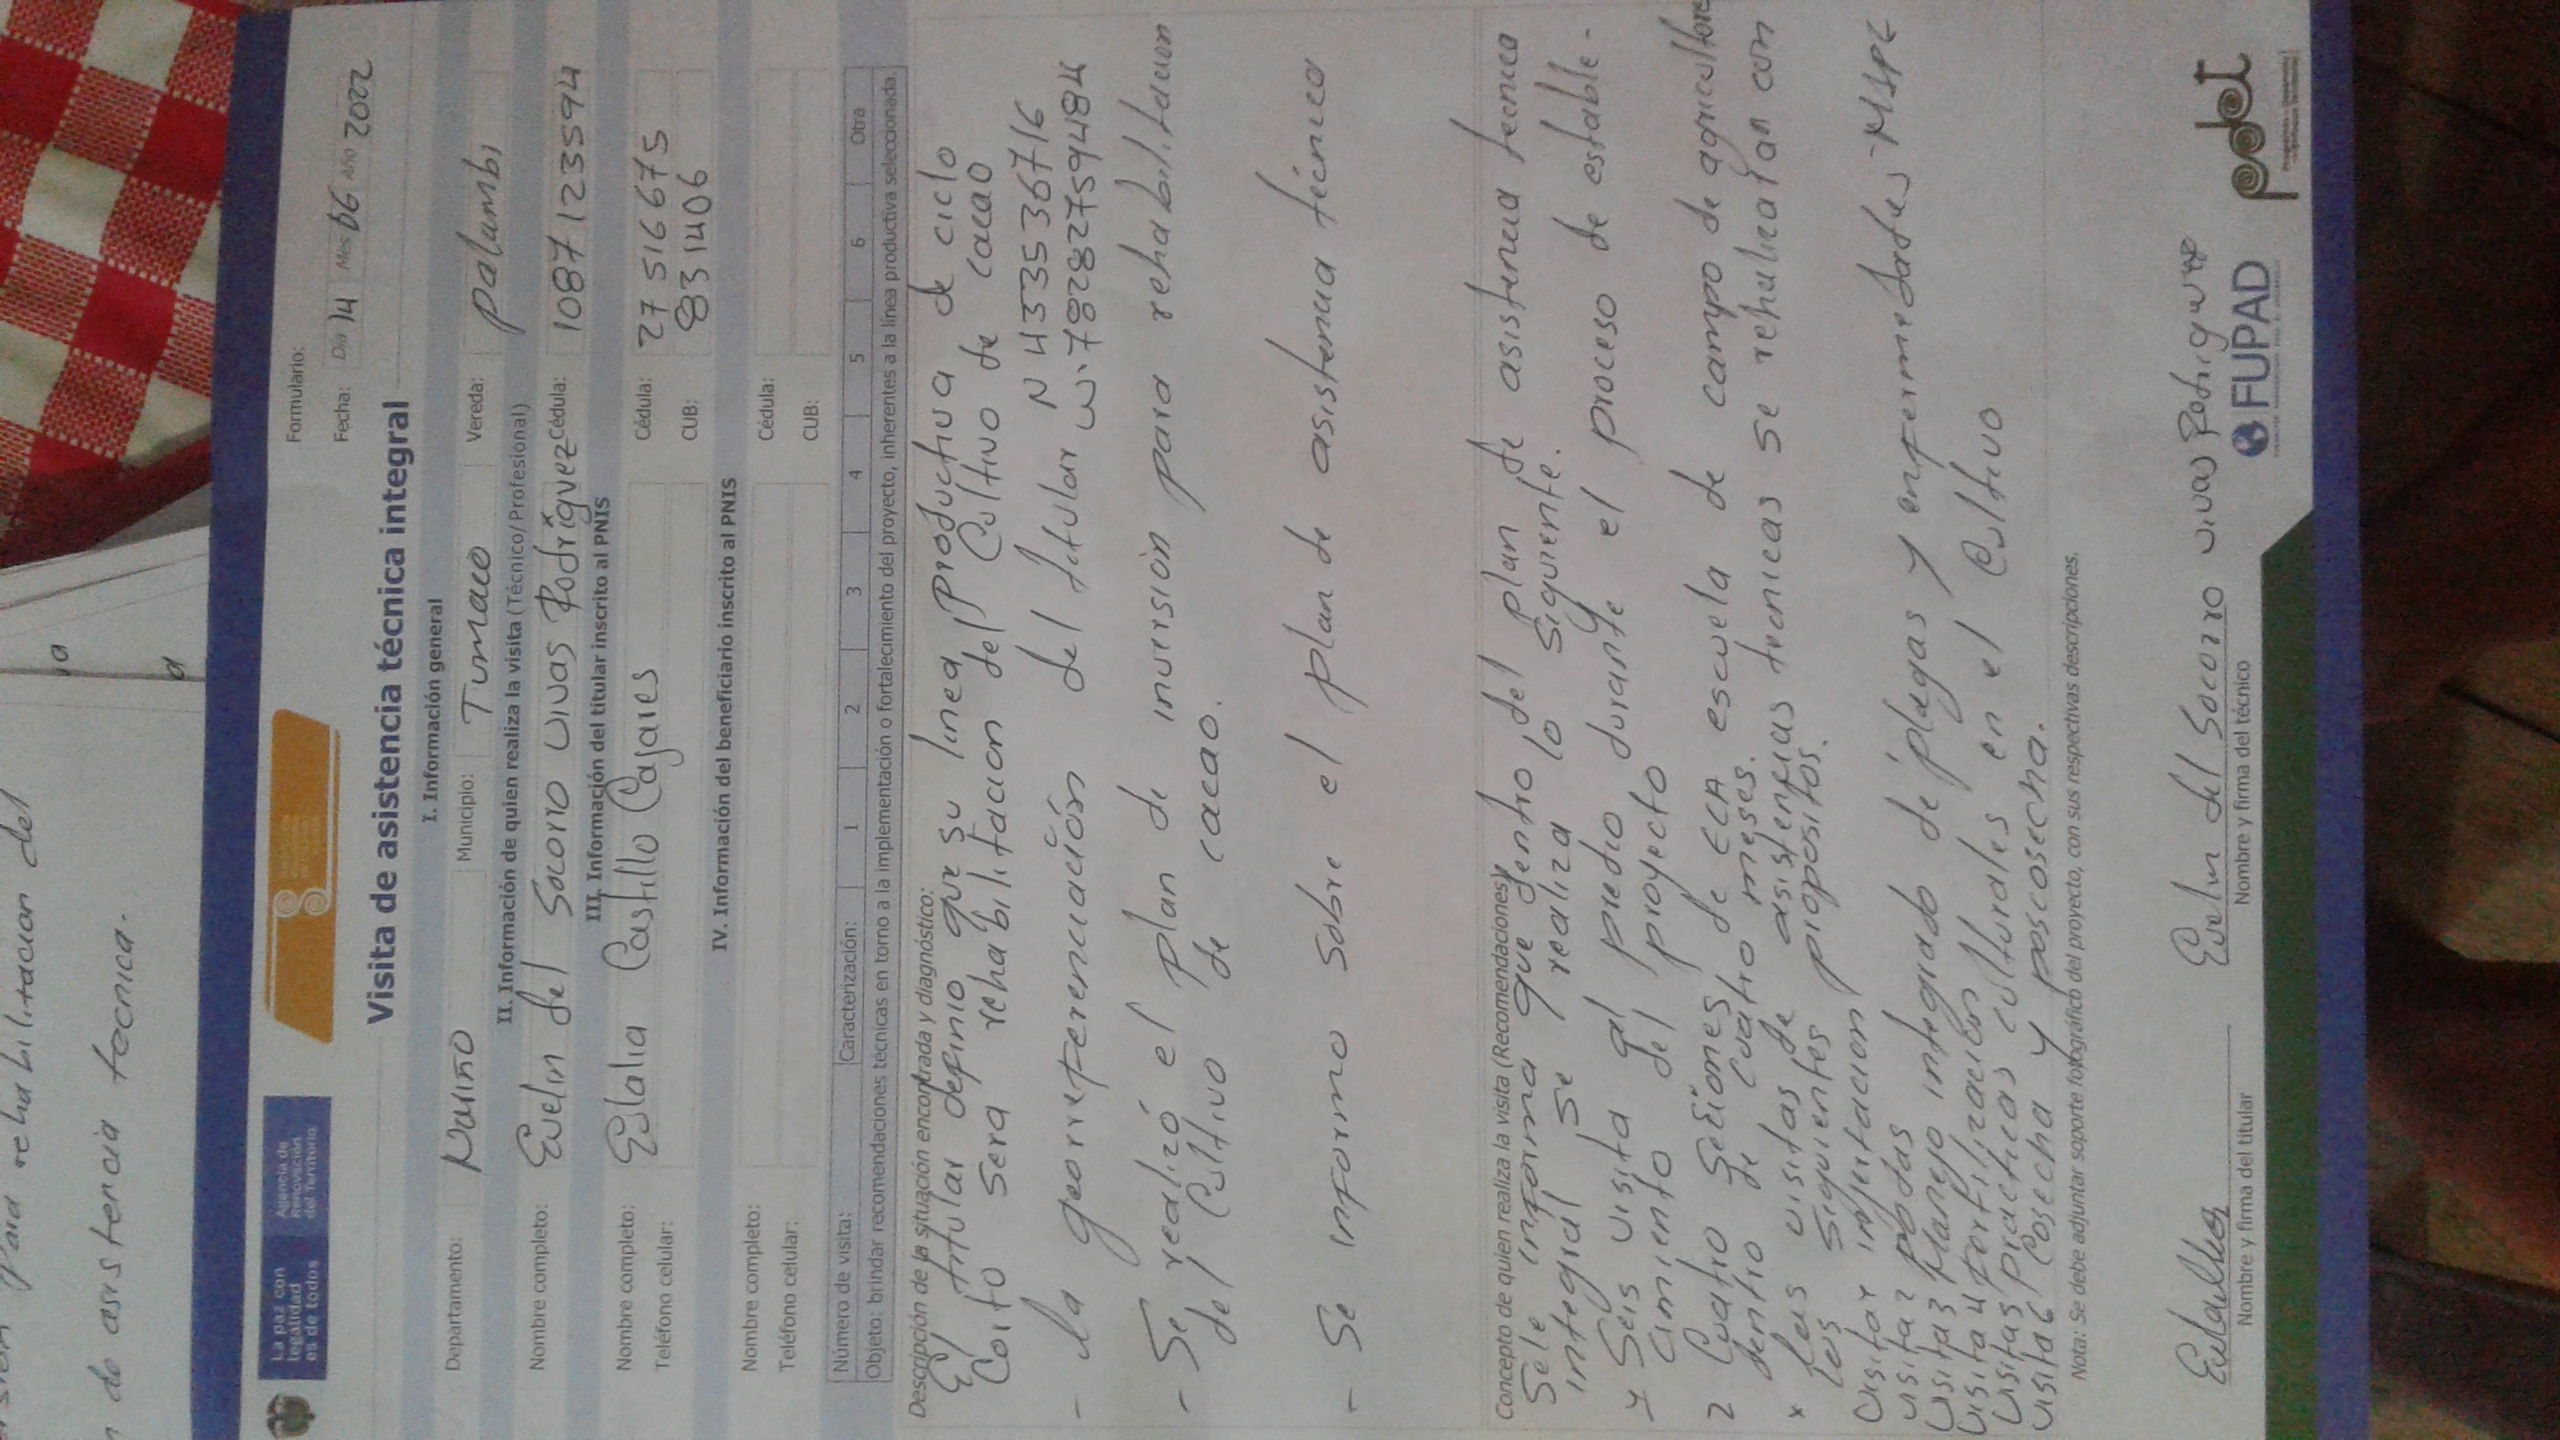 para rehabilitacion del
de asistencia tecnica.
La paz con
legalidad
es de todos
Agencia de
Renovación
del Territorio
Formulario:
Fecha: Día 14 Mes 06 Año 2022
Visita de asistencia técnica integral
I. Información general
Departamento: Nariño Municipio: Tumaco Vereda: palambi
II. Información de quien realiza la visita (Técnico/Profesional)
Nombre completo: Evelin del Socorro Vivas Rodríguez Cédula: 1087123594
III. Información del titular inscrito al PNIS
Nombre completo: Eulalia Castillo Cajares Cédula: 27516675
Teléfono celular: CUB: 831406
IV. Información del beneficiario inscrito al PNIS
Nombre completo: Cédula:
Teléfono celular: CUB:
Número de visita: Caracterización: 1 2 3 4 5 6 Otra
Objeto: brindar recomendaciones técnicas en torno a la implementación o fortalecimiento del proyecto, inherentes a la línea productiva seleccionada.
Descripción de la situación encontrada y diagnóstico:
El titular definio que su linea productiva de ciclo
Corto sera rehabilitacion del Cultivo de cacao
- la georreferenciación del titular N 433536716
W-782827594484
- Se realizó el plan de inversión para rehabilitacion
del Cultivo de cacao.
- Se informo sobre el plan de asistencia técnica
Concepto de quien realiza la visita (Recomendaciones)
Sele informa que dentro del plan de asistencia tecnica
integral se realiza lo siguiente.
Seis visita al predio durante el proceso de estable-
cimiento del proyecto
2 Cuatro Sesiones de ECA escuela de campo de agricultores
dentro de cuatro meses.
x las visitas de asistencias tecnicas se rehalizaran con
los siguientes propositos.
Visita1 injertacion
visita2 podas
Visita3 Manejo integrado de plagas y enfermedades -MIPE
Visita4 fertilización
Visita5 practicas culturales en el Cultivo
visita6 Cosecha y poscosecha.
Nota: Se debe adjuntar soporte fotográfico del proyecto, con sus respectivas descripciones.
Evelin del Socorro vivas Rodriguez
Nombre y firma del titular
Nombre y firma del técnico
FUPAD
pdet